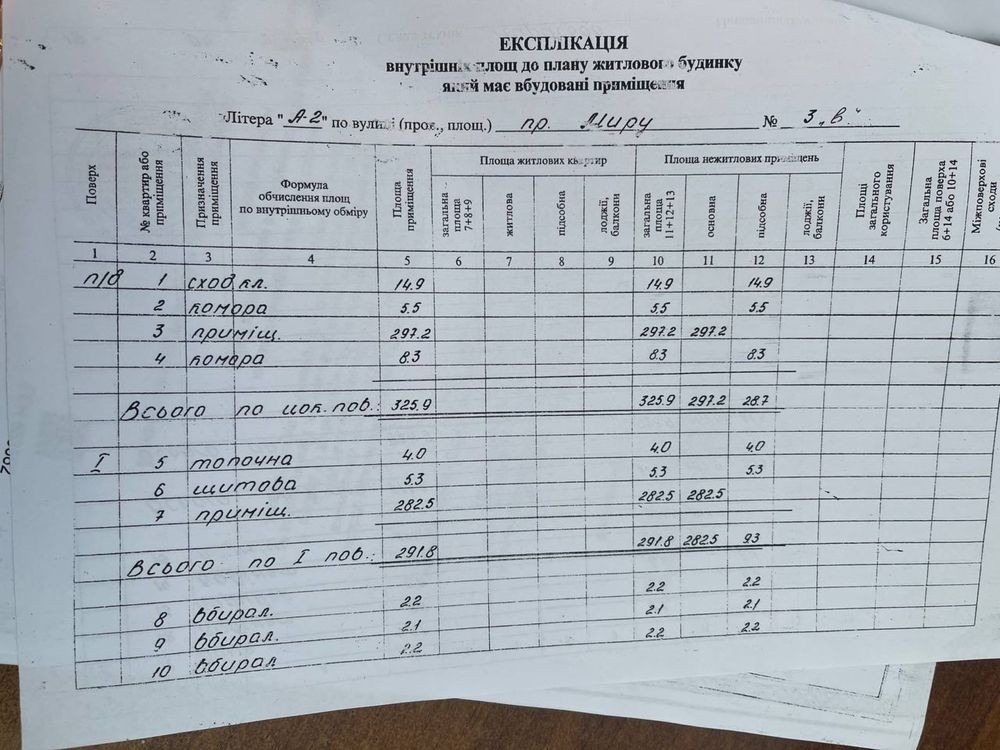 ЕКСПЛІКАЦІЯ
внутрішніх площ до плану житлового будинку
який має вбудовані приміщення
Літера "А-2" по вулиці (прос., площ.) пр. Миру № 3 „в"
Поверх № квартир або приміщення Призначення приміщення Формула обчислення площ по внутрішньому обміру Площа приміщення Площа житлових квартир Площа нежитлових приміщень Площі загального користування Загальна площа поверха 6+14 або 10+14 Міжповерхові сходи
загальна площа 7+8+9 житлова підсобна лоджії, балкони загальна площа 11+12+13 основна підсобна лоджії, балкони
1 2 3 4 5 6 7 8 9 10 11 12 13 14 15 16
п/в 1 сход.кл. 14.9 14.9 14.9
2 комора 5.5 5.5 5.5
3 приміщ. 297.2 297.2 297.2
4 комора 8.3 8.3 8.3
Всього по цок. пов.: 325.9 325.9 297.2 28.7
I 5 топочна 4.0 4.0 4.0
6 щитова 5.3 5.3 5.3
7 приміщ. 282.5 282.5 282.5
Всього по I пов.: 291.8 291.8 282.5 9.3
8 вбирал. 2.2 2.2 2.2
9 вбирал. 2.1 2.1 2.1
10 вбирал 2.2 2.2 2.2